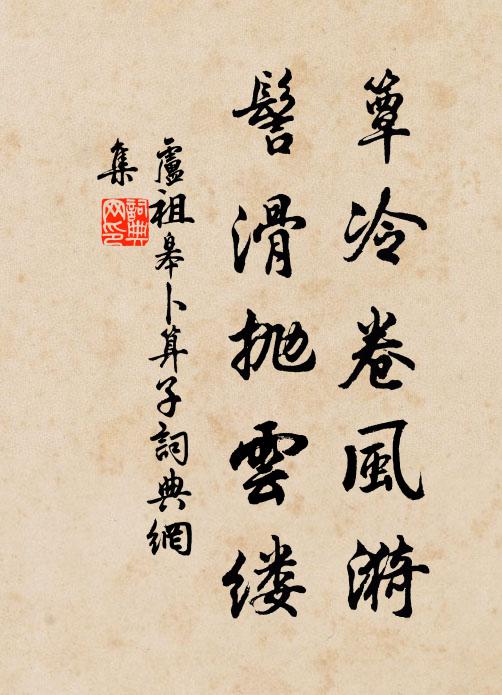 簟冷卷風漪
髻滑抛雲缕
盧祖皋卜算子詞典網
集
詞典網印